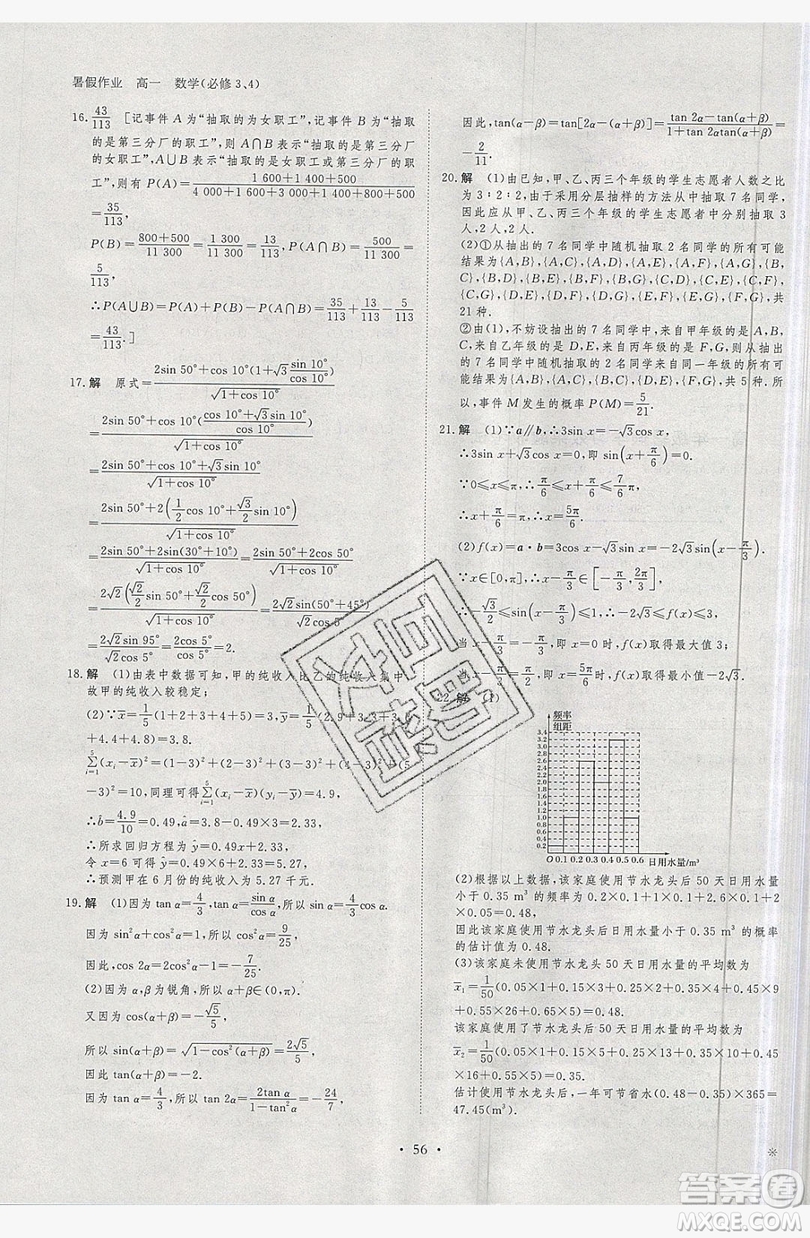 暑假作业 高一 数学(必修3、4)
16. 43/113 [记事件 A 为“抽取的为女职工”,记事件 B 为“抽取
的是第三分厂的职工”,则 A∩B 表示“抽取的是第三分厂的
女职工”,A∪B 表示“抽取的是女职工或第三分厂的职
工”,则有 P(A)=(1 600+1 400+500)/(4 000+1 600+3 000+1 400+800+500)
=35/113,
P(B)=(800+500)/11 300=1 300/11 300=13/113,P(A∩B)=500/11 300=
5/113,
∴P(A∪B)=P(A)+P(B)-P(A∩B)=35/113+13/113-5/113
=43/113.]
17. 解 原式=(2sin 50°+cos 10°(1+√3 sin 10°/cos 10°))/√(1+cos 10°)
=(2sin 50°+cos 10°((cos 10°+√3 sin 10°)/cos 10°))/√(1+cos 10°)
=(2sin 50°+2(1/2 cos 10°+√3/2 sin 10°))/√(1+cos 10°)
=(2sin 50°+2sin(30°+10°))/√(1+cos 10°)=(2sin 50°+2sin 40°)/√(1+cos 10°)
=2√2(√2/2 sin 50°+√2/2 cos 50°)/√(1+cos 10°)=2√2sin(50°+45°)/√(1+cos 10°)
=2√2sin 95°/(√2cos 5°)=2cos 5°/cos 5°=2.
18. 解 (1)由表中数据可知,甲的纯收入比乙的纯收入集中,
故甲的纯收入较稳定;
(2)∵x̄=1/5(1+2+3+4+5)=3,ȳ=1/5(2.9+3.3+3.6
+4.4+4.8)=3.8.
∑(xi-x̄)²=(1-3)²+(2-3)²+(3-3)²+(4-3)²+(5
-3)²=10,同理可得∑(xi-x̄)(yi-ȳ)=4.9,
∴b̂=4.9/10=0.49,â=3.8-0.49×3=2.33,
∴所求回归方程为 ŷ=0.49x+2.33.
令 x=6 可得 ŷ=0.49×6+2.33=5.27,
∴预测甲在 6 月份的纯收入为 5.27 千元.
19. 解 (1)因为 tan α=4/3,tan α=sin α/cos α,所以 sin α=4/3 cos α.
因为 sin²α+cos²α=1,所以 cos²α=9/25,
因此 cos 2α=2cos²α-1=-7/25.
(2)因为 α,β 为锐角,所以 α+β∈(0,π).
又因为 cos(α+β)=-√5/5,
所以 sin(α+β)=√(1-cos²(α+β))=2√5/5,
因此 tan(α+β)=-2.
因为 tan α=4/3,所以 tan 2α=2tan α/(1-tan²α)=-24/7,
因此,tan(α-β)=tan[2α-(α+β)]=(tan 2α-tan(α+β))/(1+tan 2αtan(α+β))=
-2/11.
20. 解 (1)由已知,甲、乙、丙三个年级的学生志愿者人数之比
为 3∶2∶2,由于采用分层抽样的方法从中抽取 7 名同学,
因此应从甲、乙、丙三个年级的学生志愿者中分别抽取 3
人,2 人,2 人.
(2)①从抽出的 7 名同学中随机抽取 2 名同学的所有可能
结果为{A,B},{A,C},{A,D},{A,E},{A,F},{A,G},
{B,C},{B,D},{B,E},{B,F},{B,G},{C,D},{C,E},
{C,F},{C,G},{D,E},{D,F},{D,G},{E,F},{E,G},{F,G},共
21 种.
②由(1),不妨设抽出的 7 名同学中,来自甲年级的是 A,B,
C,来自乙年级的是 D,E,来自丙年级的是 F,G,则从抽出的
7 名同学中随机抽取的 2 名同学来自同一年级的所有可能
结果为{A,B},{A,C},{B,C},{D,E},{F,G},共 5 种.所
以,事件 M 发生的概率 P(M)=5/21.
21. 解 (1)∵a∥b,∴3sin x=-√3cos x,
∴3sin x+√3cos x=0,即 sin(x+π/6)=0.
∵0≤x≤π,∴π/6≤x+π/6≤7π/6,
∴x+π/6=π,∴x=5π/6.
(2)f(x)=a·b=3cos x-√3sin x=-2√3sin(x-π/3).
∵x∈[0,π],∴x-π/3∈[-π/3,2π/3],
∴-√3/2≤sin(x-π/3)≤1,∴-2√3≤f(x)≤3,
当 x-π/3=-π/3,即 x=0 时,f(x)取得最大值 3;
当 x-π/3=π/2,即 x=5π/6时,f(x)取得最小值-2√3.
22. 解 (1)
频率/组距
3.4
3.2
3.0
2.8
2.6
2.4
2.2
2.0
1.8
1.6
1.4
1.2
1.0
0.8
0.6
0.4
0.2
O 0.1 0.2 0.3 0.4 0.5 0.6 日用水量/m³
(2)根据以上数据,该家庭使用节水龙头后 50 天日用水量
小于 0.35 m³ 的频率为 0.2×0.1+1×0.1+2.6×0.1+2
×0.05=0.48,
因此该家庭使用节水龙头后日用水量小于 0.35 m³ 的概率
的估计值为 0.48.
(3)该家庭未使用节水龙头 50 天日用水量的平均数为
x̄₁=1/50(0.05×1+0.15×3+0.25×2+0.35×4+0.45×9
+0.55×26+0.65×5)=0.48.
该家庭使用了节水龙头后 50 天日用水量的平均数为
x̄₂=1/50(0.05×1+0.15×5+0.25×13+0.35×10+0.45
×16+0.55×5)=0.35.
估计使用节水龙头后,一年可节省水(0.48-0.35)×365=
47.45(m³).
• 56 •
※
答案卷
MXQE.COM